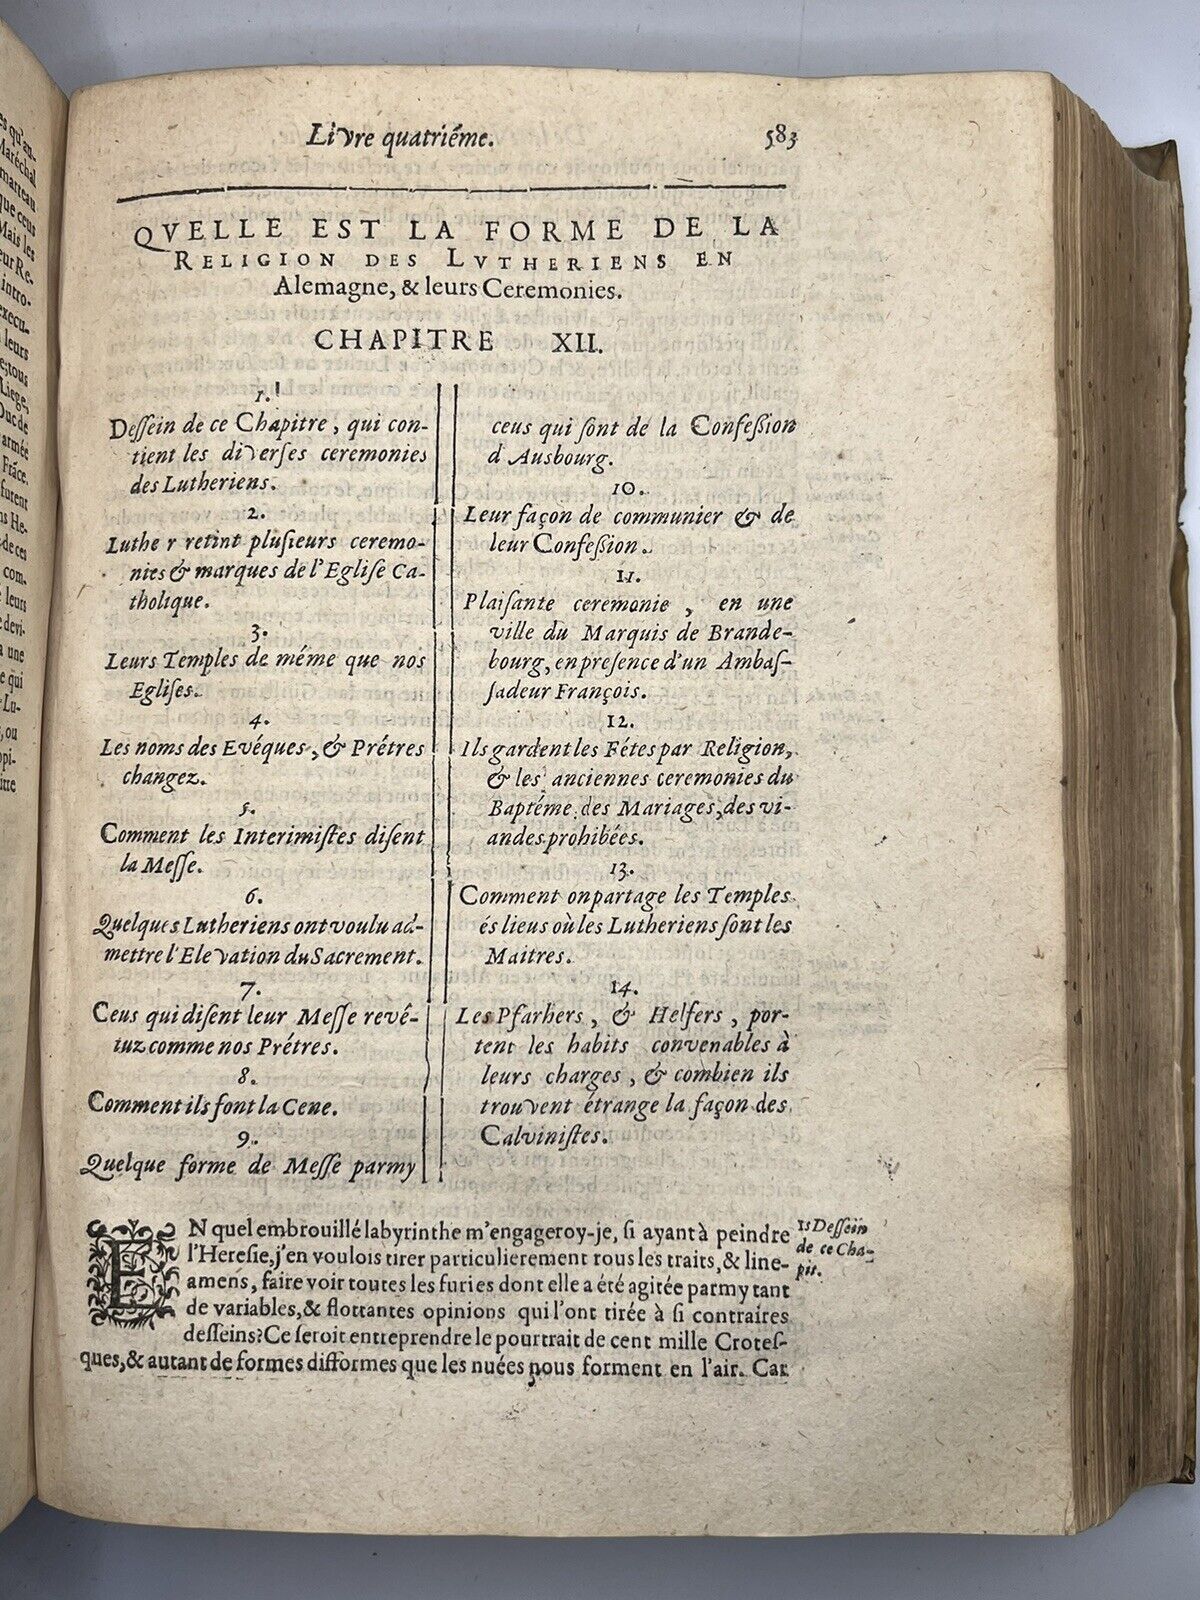 es qu'au-
Maréchal
marteau
que ceus
Mais les
eur Re-
intro-
execu-
leurs
e; tous
Liege,
Duc de
armée
Frãce.
furent
ns He-
de ces
com-
leurs
devi-
a une
e qui
Lu-
, ou
opi-
itre
Livre quatriéme. 583
QVELLE EST LA FORME DE LA
RELIGION DES LVTHERIENS EN
Alemagne, & leurs Ceremonies.
CHAPITRE XII.
1.
Deſſein de ce Chapitre, qui con-
tient les diverſes ceremonies
des Lutheriens.
2.
Luther retint pluſieurs ceremo-
nies & marques de l'Egliſe Ca-
tholique.
3.
Leurs Temples de méme que nos
Egliſes.
4.
Les noms des Evéques, & Prétres
changez.
5.
Comment les Interimiſtes diſent
la Meſſe.
6.
Quelques Lutheriens ont voulu ad-
mettre l'Elevation du Sacrement.
7.
Ceus qui diſent leur Meſſe revé-
tuz comme nos Prétres.
8.
Comment ils font la Cene.
9.
Quelque forme de Meſſe parmy
ceus qui ſont de la Confeſsion
d'Ausbourg.
10.
Leur façon de communier & de
leur Confeſsion.
11.
Plaiſante ceremonie, en une
ville du Marquis de Brande-
bourg, en preſence d'un Ambaſ-
ſadeur François.
12.
Ils gardent les Fétes par Religion,
& les anciennes ceremonies du
Baptéme, des Mariages, des vi-
andes prohibées.
13.
Comment on partage les Temples
és lieus où les Lutheriens ſont les
Maitres.
14.
Les Pfarhers, & Helfers, por-
tent les habits convenables à
leurs charges, & combien ils
trouvent étrange la façon des
Calviniſtes.
EN quel embrouillé labyrinthe m'engageroy-je, ſi ayant à peindre
l'Hereſie, j'en voulois tirer particulierement tous les traits, & line-
amens, faire voir toutes les furies dont elle a été agitée parmy tant
de variables, & flottantes opinions qui l'ont tirée à ſi contraires
deſſeins? Ce ſeroit entreprendre le pourtrait de cent mille Croteſ-
ques, & autant de formes difformes que les nuées nous forment en l'air. Car
1. Deſſein
de ce Cha-
pit.